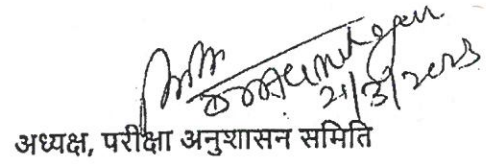 21/3/2023
अध्यक्ष, परीक्षा अनुशासन समिति